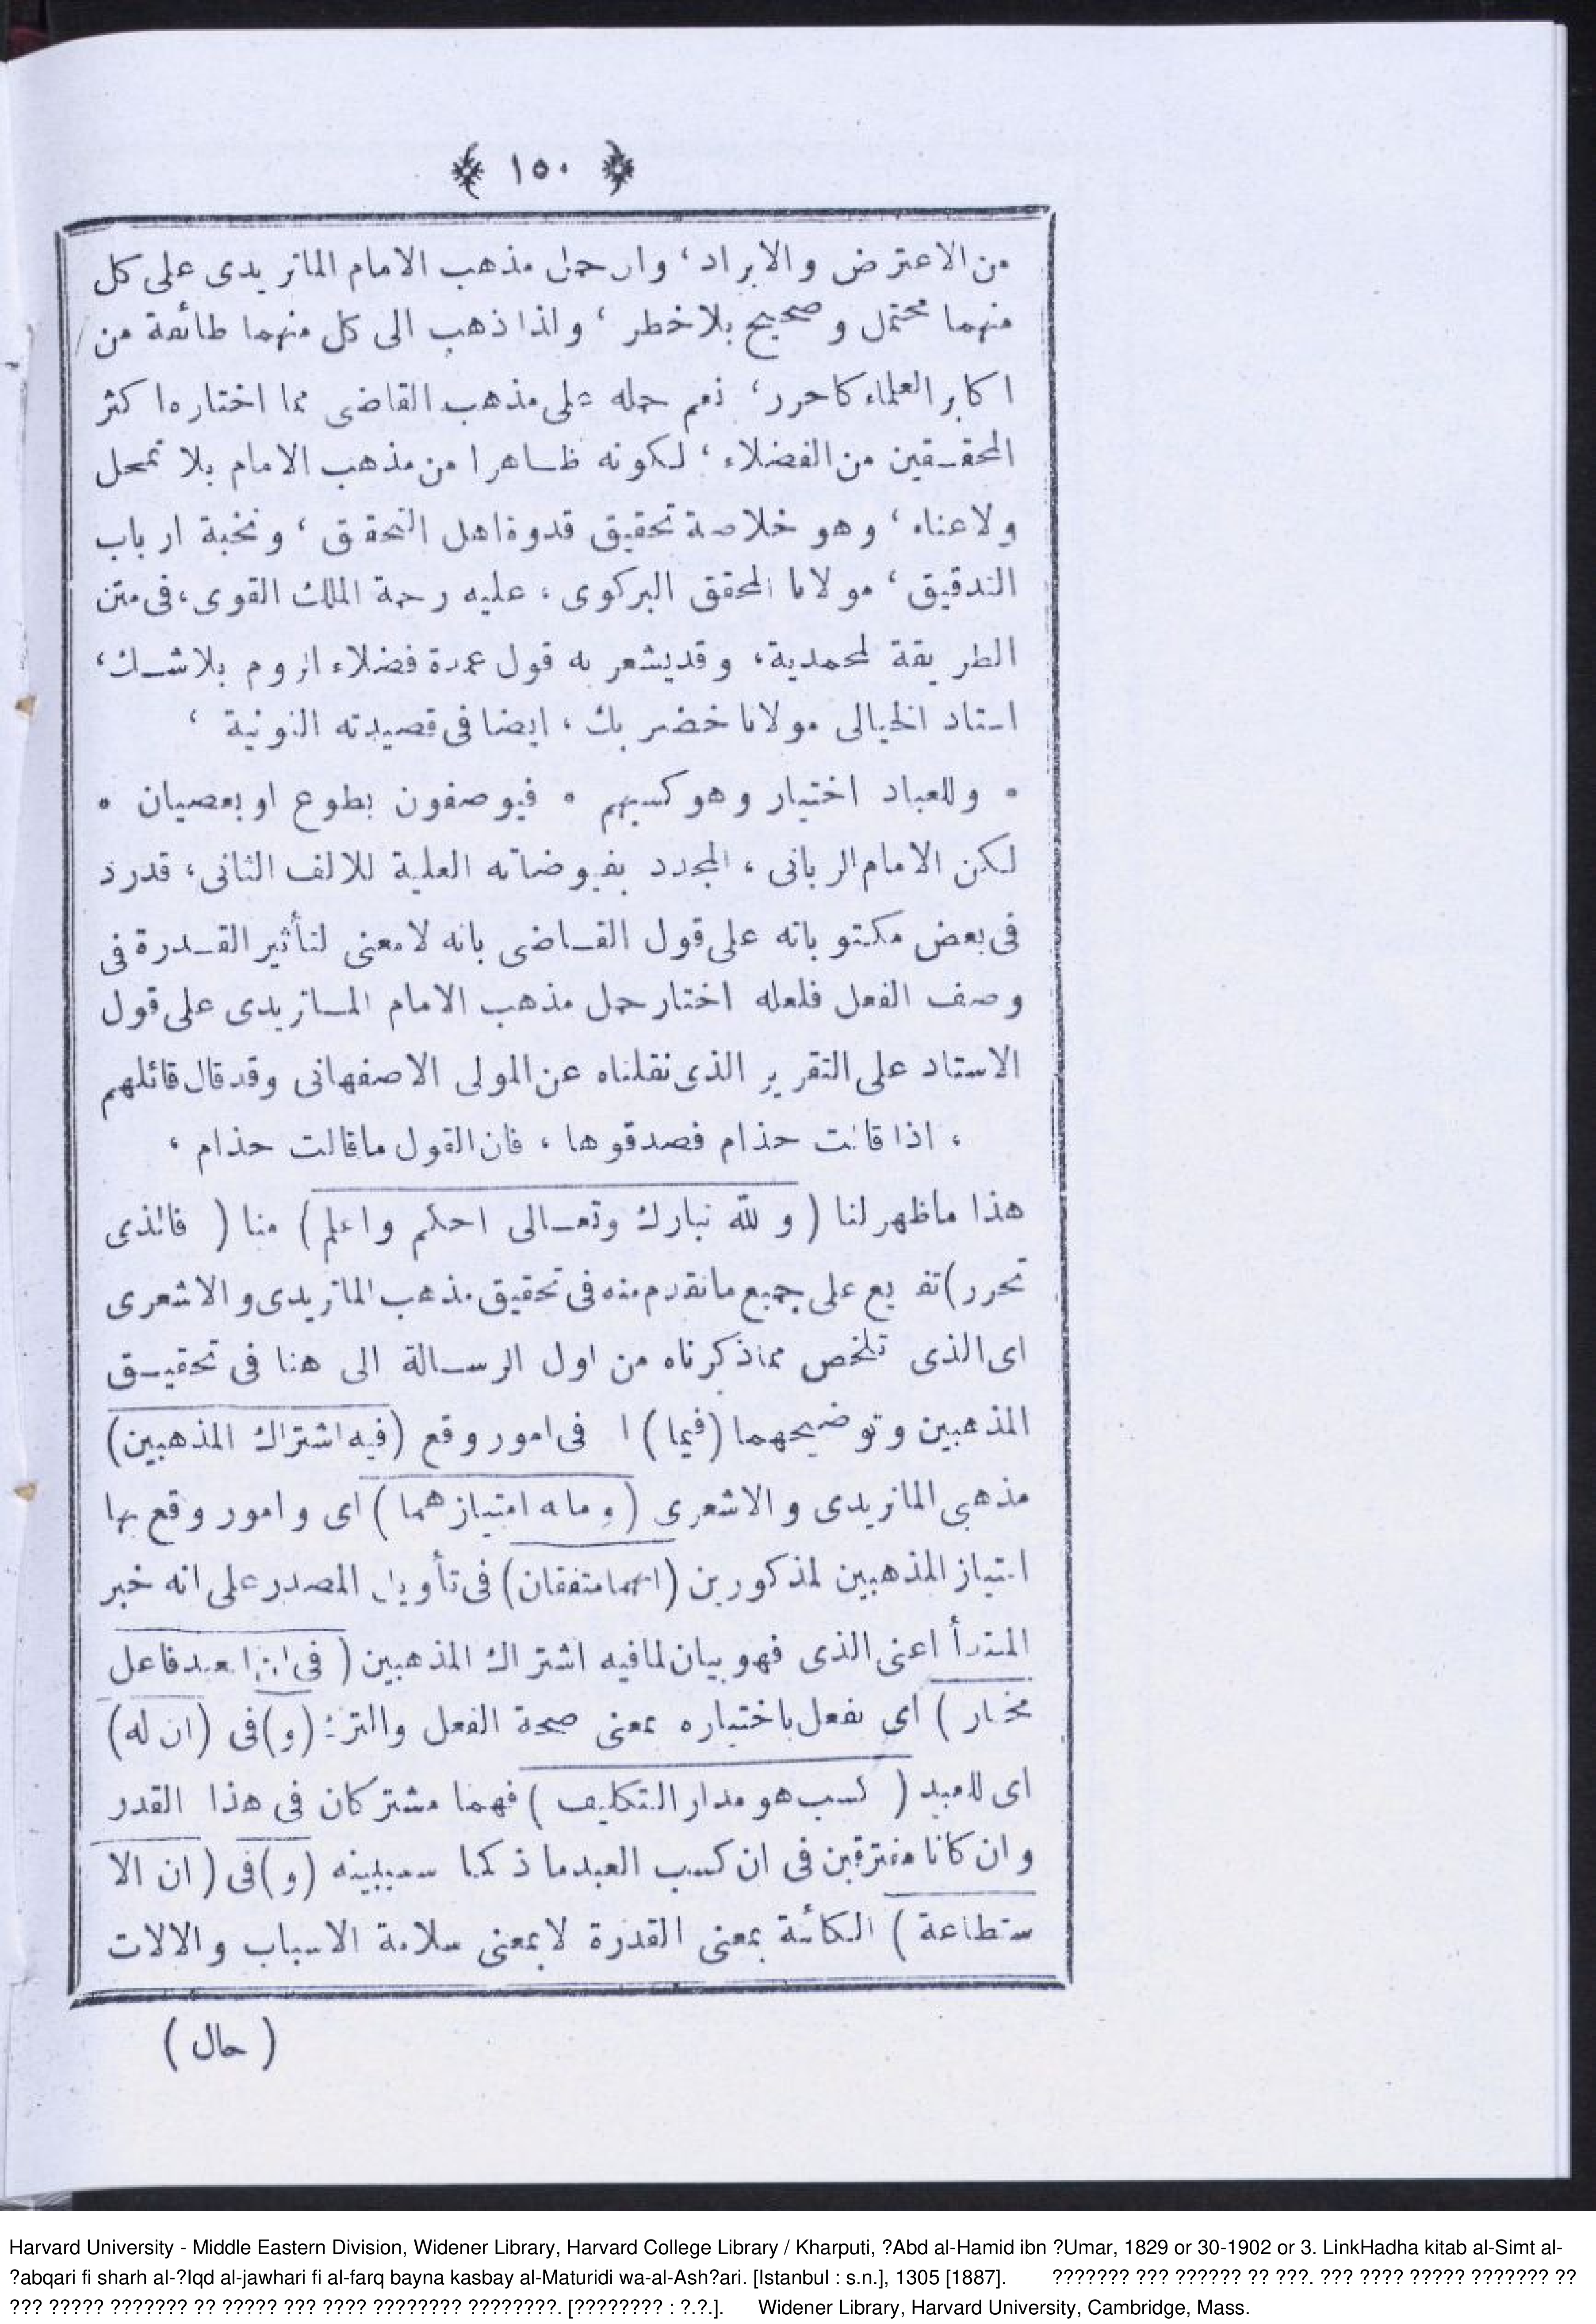 ﴿ ١٥٠ ﴾
من الاعترض والايراد، وان حمل مذهب الامام الماتريدى على كل
منهما محتمل وصحيح بلا خطر، ولذا ذهب الى كل منهما طائفة من
اكابر العلماء كما حرر، نعم حمله على مذهب القاضى مما اختاره اكثر
المحققين من الفضلاء، لكونه ظاهرا من مذهب الامام بلا تمحل
ولا عناء، وهو خلاصة تحقيق قدوة اهل التحقق، ونخبة ارباب
التدقيق، مولانا المحقق البركوى، عليه رحمة الملك القوى، فى متن
الطريقة المحمدية، وقد يشعر به قول عمدة فضلاء الروم بلا شك،
استاد الخيالى مولانا خضر بك، ايضا فى قصيدته النونية،
٥ وللعباد اختيار وهو كسبهم ٥ فيوصفون بطوع او بعصيان ٥
لكن الامام الربانى، المجدد بفيوضاته العلية للالف الثانى، قدرد
فى بعض مكتوباته على قول القاضى بانه لا معنى لتأثير القدرة فى
وصف الفعل فلعله اختار حمل مذهب الامام الماتريدى على قول
الاستاد على التقرير الذى نقلناه عن المولى الاصفهانى وقد قال قائلهم
، اذا قالت حذام فصدقوها، فان القول ما قالت حذام،
هذا ما ظهر لنا (والله تبارك وتعالى احكم واعلم) منا (فالذى
تحرر) تفريع على جميع ما تقدم منه فى تحقيق مذهب الماتريدى والاشعرى
اى الذى تلخص مما ذكرناه من اول الرسالة الى هنا فى تحقيق
المذهبين وتوضيحهما (فيما) ا فى امور وقع (فيه اشتراك المذهبين)
مذهبى الماتريدى والاشعرى (وما به امتيازهما) اى وامور وقع بها
امتياز المذهبين المذكورين (انهما متفقان) فى تأويل المصدر على انه خبر
المبتدأ اعنى الذى فهو بيان لما فيه اشتراك المذهبين (فى ان العبد فاعل
مختار) اى يفعل باختياره بمعنى صحة الفعل والترك (و) فى (ان له)
اى للعبد (كسب هو مدار التكليف) فهما مشتركان فى هذا القدر
وان كانا مفترقين فى ان كسب العبد ماذا كما سيبينه (و) فى (ان الا
ستطاعة) الكائنة بمعنى القدرة لا بمعنى سلامة الاسباب والالات
(حال)
Harvard University - Middle Eastern Division, Widener Library, Harvard College Library / Kharputi, ?Abd al-Hamid ibn ?Umar, 1829 or 30-1902 or 3. LinkHadha kitab al-Simt al-
?abqari fi sharh al-?Iqd al-jawhari fi al-farq bayna kasbay al-Maturidi wa-al-Ash?ari. [Istanbul : s.n.], 1305 [1887]. ??????? ??? ?????? ?? ???. ??? ???? ????? ??????? ??
??? ????? ??????? ?? ????? ??? ???? ???????? ????????. [???????? : ?.?.]. Widener Library, Harvard University, Cambridge, Mass.